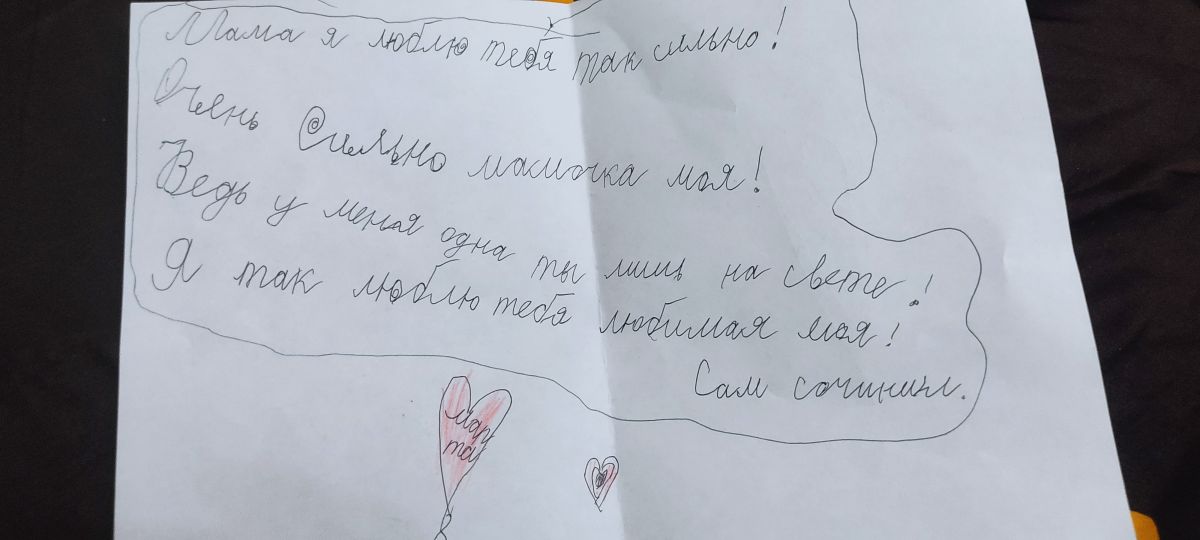 Мама я люблю тебя так сильно!
Очень Сильно мамочка моя!
Ведь у меня одна ты лишь на свете!
Я так люблю тебя любимая моя!
Сам сочинил.
мар
та